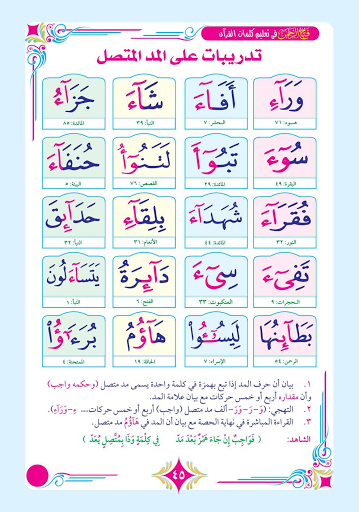 فتح الرحمن في تعليم كلمات القرآن
تدريبات على المد المتصل
وَرَآءِ أَفَآءَ شَآءَ جَزَآءُ
هود: ٧١ الحشر: ٧ النبأ: ٣٩ المائدة: ٨٥
سُوٓءَ تَبُوٓأَ لَتَنُوٓأُ حُنَفَآءَ
البقرة: ٤٩ المائدة: ٢٩ القصص: ٧٦ البينة: ٥
فُقَرَآءَ شُهَدَآءَ بِلِقَآءِ حَدَآئِقَ
النور: ٣٢ المائدة: ٤٤ الأنعام: ٣١ النبأ: ٣٢
تَفِىٓءَ سِىٓءَ دَآئِرَةُ يَتَسَآءَلُونَ
الحجرات: ٩ العنكبوت: ٣٣ الفتح: ٦ النبأ: ١
بَطَآئِنُهَا لِيَسُـۥٓـُٔوا۟ هَآؤُمُ بُرَءَٰٓؤُا۟
الرحمن: ٥٤ الإسراء: ٧ الحاقة: ١٩ الممتحنة: ٤
١. بيان أن حرف المد إذا تبع بهمزة في كلمة واحدة يسمى مد متصل (وحكمه واجب)
وأن مقداره أربع أو خمس حركات مع بيان علامة المد.
٢. التهجي: (وَ - رَ - وَرَ - ألف مد متصل (واجب) أربع أو خمس حركات... ءِ - وَرَآءِ).
٣. القراءة المباشرة في نهاية الحصة مع بيان أن المد في هَآؤُمُ مد متصل.
الشاهد: ( فَوَاجِبٌ إِنْ جَاءَ هَمْزٌ بَعْدَ مَدْ فِي كِلْمَةٍ وَذَا بِمُتَّصِلٍ يُعَدْ )
٤٥